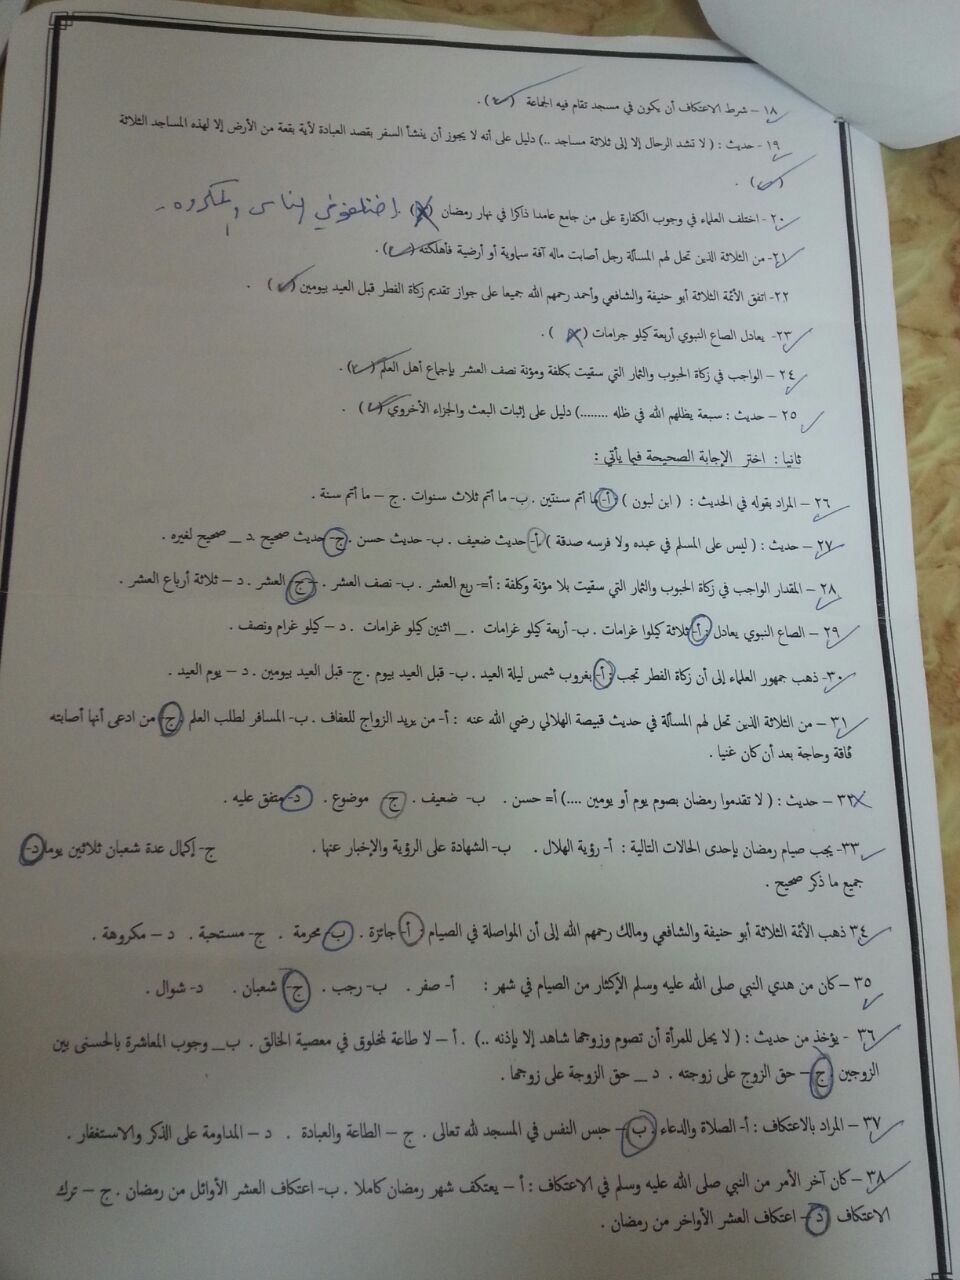 ١٨ – شرط الاعتكاف أن يكون في مسجد تقام فيه الجماعة ( ✓ ) .
١٩ - حديث : ( لا تشد الرحال إلا إلى ثلاثة مساجد ..) دليل على أنه لا يجوز أن ينشأ السفر بقصد العبادة لأية بقعة من الأرض إلا لهذه المساجد الثلاثة
( ✓ ) .
٢٠- اختلف العلماء في وجوب الكفارة على من جامع عامدا ذاكرا في نهار رمضان ( X ) . اختلفو في الناس والمكروه
٢١- من الثلاثة الذين تحل لهم المسألة رجل أصابت ماله آفة سماوية أو أرضية فأهلكته ( ✓ ) .
٢٢- اتفق الأئمة الثلاثة أبو حنيفة والشافعي وأحمد رحمهم الله جميعا على جواز تقديم زكاة الفطر قبل العيد بيومين ( ✓ ) .
٢٣- يعادل الصاع النبوي أربعة كيلو جرامات ( X ) .
٢٤ – الواجب في زكاة الحبوب والثمار التي سقيت بكلفة ومؤنة نصف العشر بإجماع أهل العلم ( ✓ ) .
٢٥ – حديث : سبعة يظلهم الله في ظله ........) دليل على إثبات البعث والجزاء الأخروي ( ✓ ) .
ثانيا : اختر الإجابة الصحيحة فيما يأتي :
٢٦ – المراد بقوله في الحديث : ( ابن لبون ) : أ- ما أتم سنتين . ب- ما أتم ثلاث سنوات . ج – ما أتم سنة .
٢٧ – حديث : ( ليس على المسلم في عبده ولا فرسه صدقة ) أ- حديث ضعيف . ب- حديث حسن . ج- حديث صحيح . د _ صحيح لغيره .
٢٨ – المقدار الواجب في زكاة الحبوب والثمار التي سقيت بلا مؤنة وكلفة : أ=- ربع العشر . ب- نصف العشر . – ج- العشر . د – ثلاثة أرباع العشر .
٢٩ – الصاع النبوي يعادل : أ- ثلاثة كيلوا غرامات . ب- أربعة كيلو غرامات . _ اثنين كيلو غرامات . د – كيلو غرام ونصف .
٣٠- ذهب جمهور العلماء إلى أن زكاة الفطر تجب : أ- بغروب شمس ليلة العيد . ب- قبل العيد بيوم . ج- قبل العيد بيومين . د – يوم العيد .
٣١ – من الثلاثة الذين تحل لهم المسألة في حديث قبيصة الهلالي رضي الله عنه : أ- من يريد الزواج للعفاف . ب- المسافر لطلب العلم . ج- من ادعى أنها أصابته
فاقة وحاجة بعد أن كان غنيا .
٣٢ – حديث : ( لا تقدموا رمضان بصوم يوم أو يومين ....) أ= حسن . ب- ضعيف . ج- موضوع . د- متفق عليه .
٣٣- يجب صيام رمضان بإحدى الحالات التالية : أ- رؤية الهلال . ب- الشهادة على الرؤية والإخبار عنها . ج- إكمال عدة شعبان ثلاثين يوما د-
جميع ما ذكر صحيح .
٣٤ ذهب الأئمة الثلاثة أبو حنيفة والشافعي ومالك رحمهم الله إلى أن المواصلة في الصيام : أ- جائزة . ب- محرمة . ج- مستحبة . د – مكروهة .
٣٥ – كان من هدي النبي صلى الله عليه وسلم الإكثار من الصيام في شهر : أ- صفر . ب- رجب . ج- شعبان . د- شوال .
٣٦ - يؤخذ من حديث : ( لا يحل للمرأة أن تصوم وزوجها شاهد إلا بإذنه ..) . أ – لا طاعة لمخلوق في معصية الخالق . ب_ وجوب المعاشرة بالحسنى بين
الزوجين . ج – حق الزوج على زوجته . د _ حق الزوجة على زوجها .
٣٧ – المراد بالاعتكاف : أ- الصلاة والدعاء ب – حبس النفس في المسجد لله تعالى . ج – الطاعة والعبادة . د – المداومة على الذكر والاستغفار .
٣٨ – كان آخر الأمر من النبي صلى الله عليه وسلم في الاعتكاف : أ – يعتكف شهر رمضان كاملا . ب- اعتكاف العشر الأوائل من رمضان . ج – ترك
الاعتكاف د – اعتكاف العشر الأواخر من رمضان .